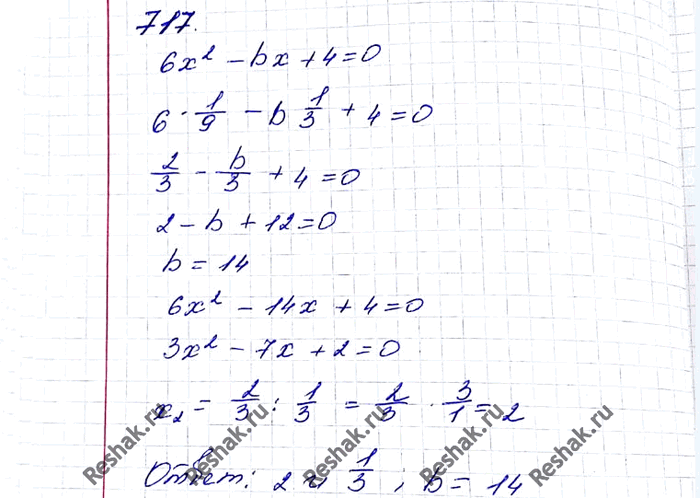 717.
6x² - bx + 4 = 0
6 · 1/9 - b 1/3 + 4 = 0
2/3 - b/3 + 4 = 0
2 - b + 12 = 0
b = 14
6x² - 14x + 4 = 0
3x² - 7x + 2 = 0
x₂ = 2/3 : 1/3 = 2/3 · 3/1 = 2
Ответ: 2 и 1/3 ; b = 14
Reshak.ru Reshak.ru Reshak.ru Reshak.ru